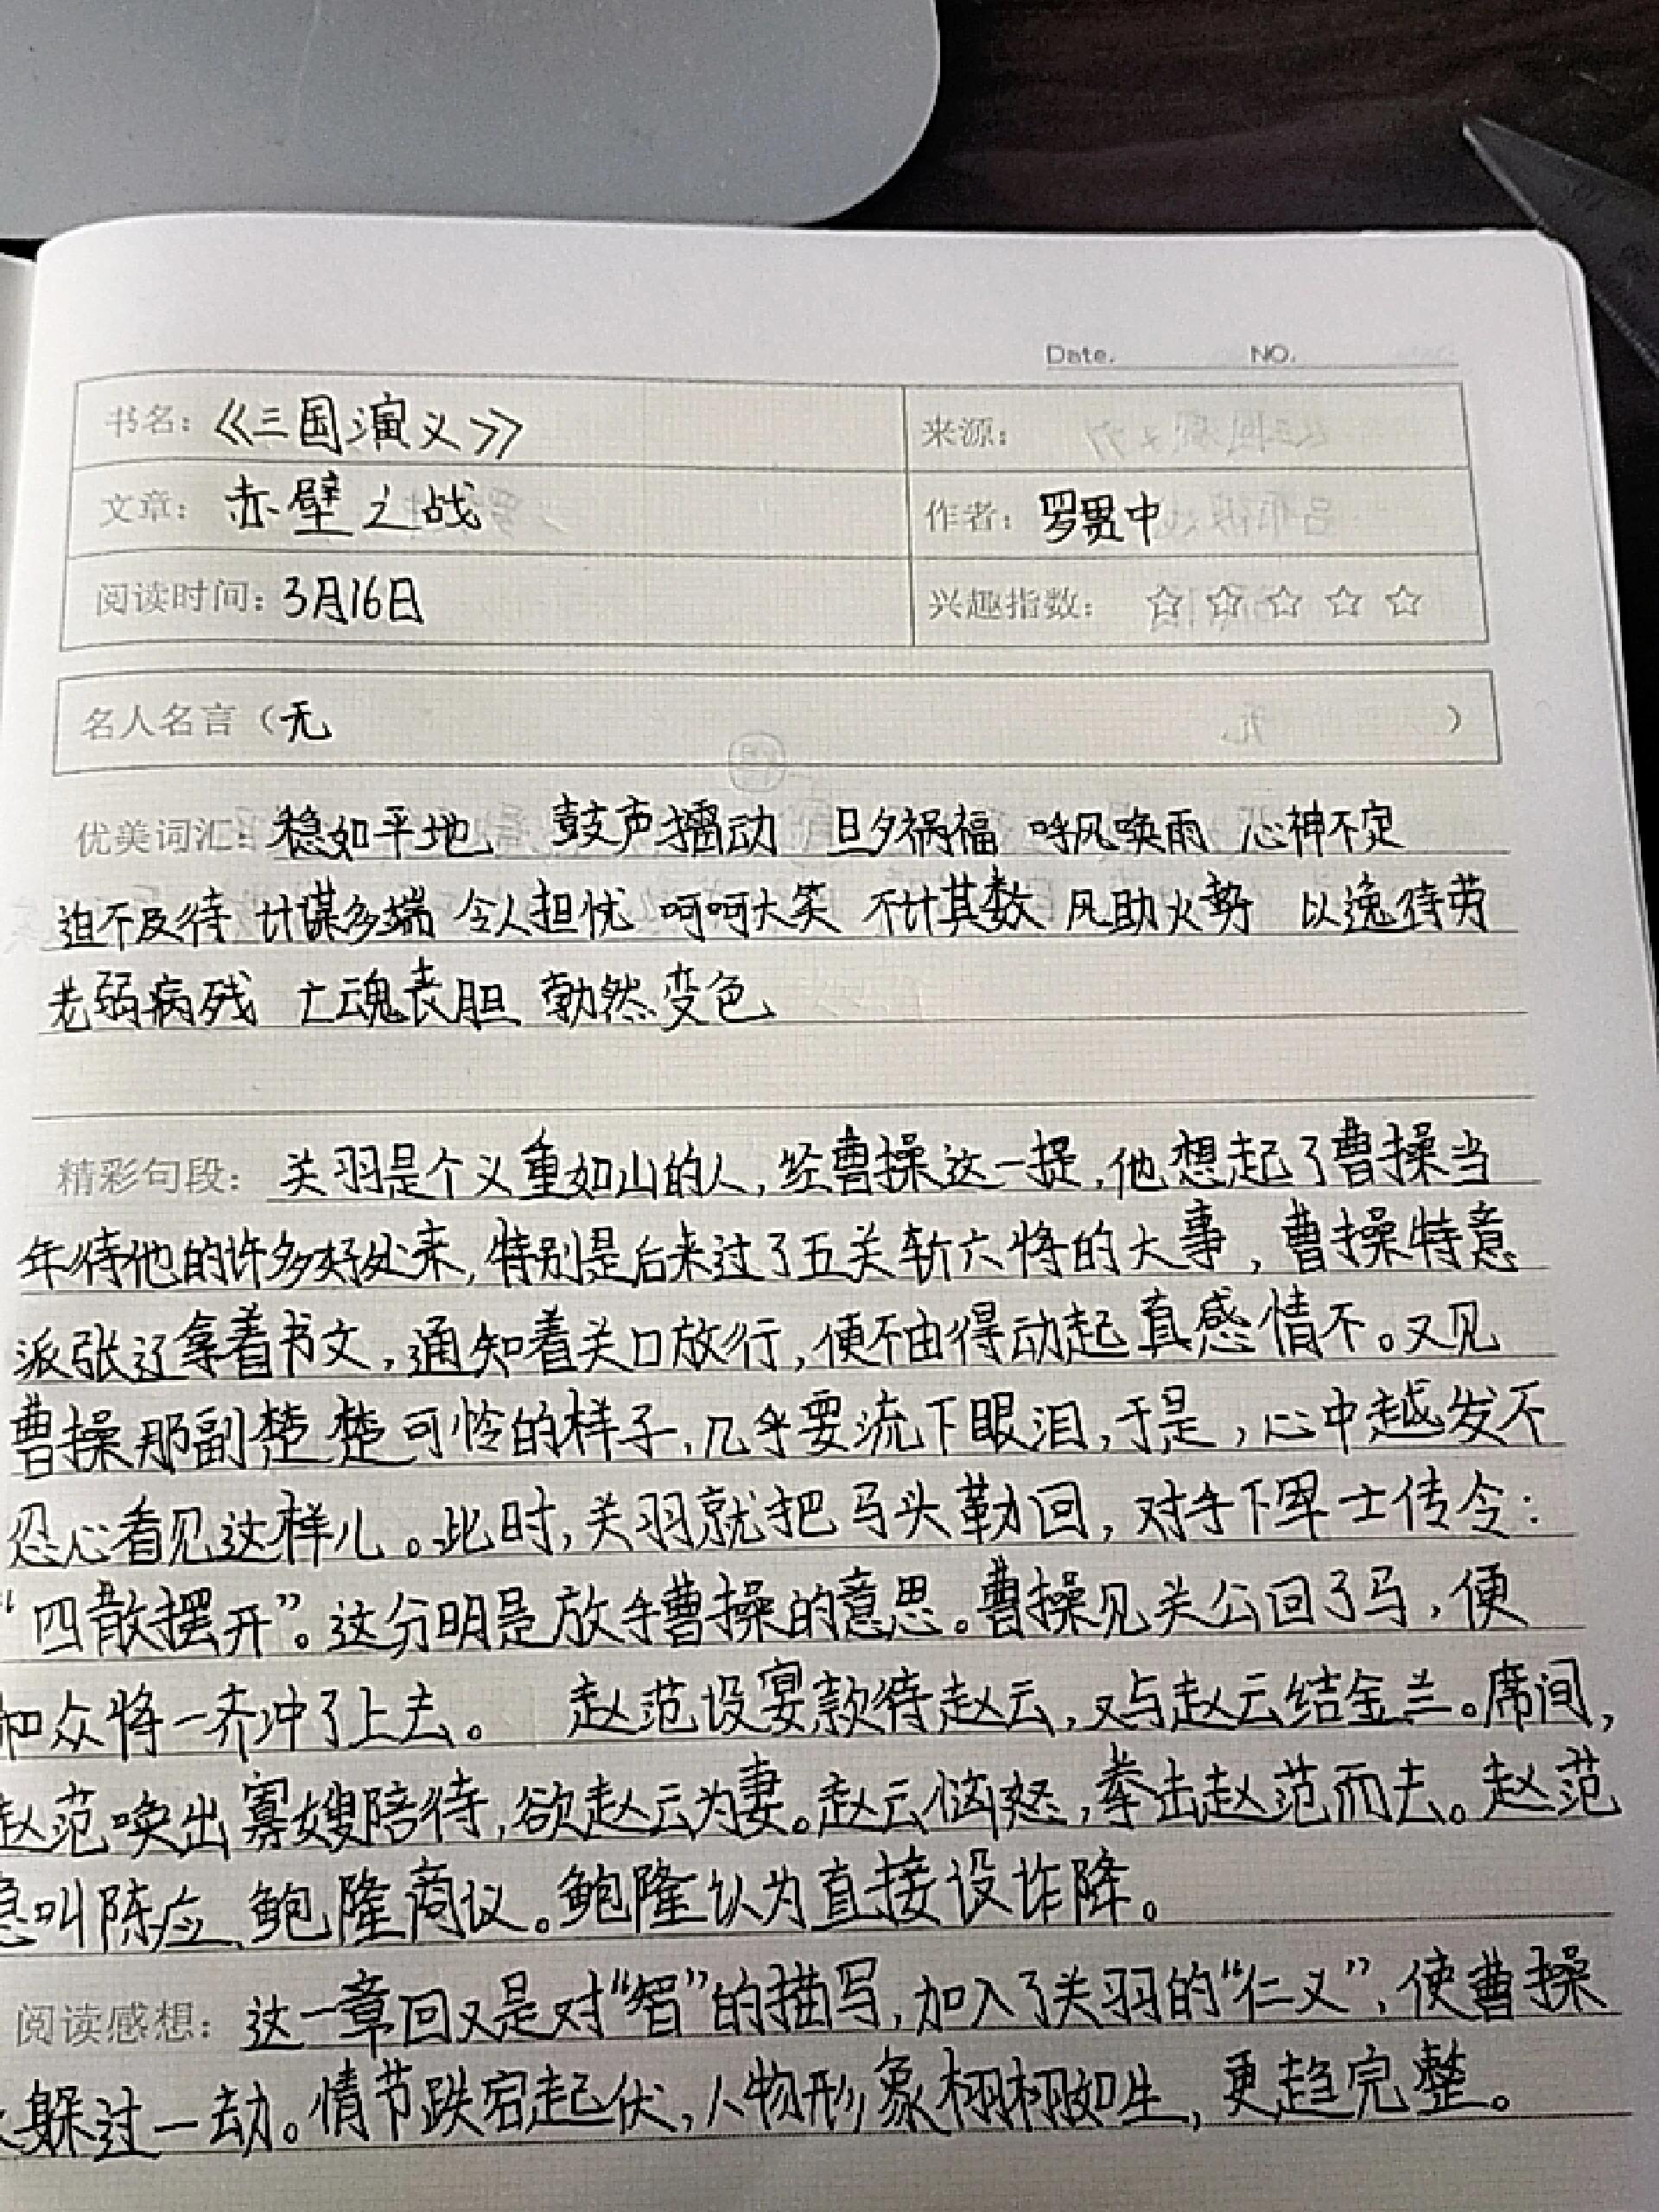 Date. NO.
书名：《三国演义》 来源：
文章：赤壁之战 作者：罗贯中
阅读时间：3月16日 兴趣指数：☆☆☆☆☆
名人名言（无 ）
优美词汇：稳如平地 鼓声擂动 旦夕祸福 呼风唤雨 心神不定
迫不及待 计谋多端 令人担忧 呵呵大笑 不计其数 风助火势 以逸待劳
老弱病残 亡魂丧胆 勃然变色
精彩句段：关羽是个义重如山的人，经曹操这一提，他想起了曹操当
年待他的许多好处来，特别是后来过了五关斩六将的大事，曹操特意
派张辽拿着书文，通知着关口放行，便不由得动起真感情不。又见
曹操那副楚楚可怜的样子，几乎要流下眼泪，于是，心中越发不
忍心看见这样儿。此时，关羽就把马头勒回，对手下军士传令：
“四散摆开”。这分明是放手曹操的意思。曹操见关公回了马，便
和众将一齐冲了上去。 赵范设宴款待赵云，又与赵云结金兰。席间，
赵范唤出寡嫂陪待，欲赵云为妻。赵云恼怒，拳击赵范而去。赵范
急叫陈应、鲍隆商议。鲍隆认为直接设诈降。
阅读感想：这一章回又是对“智”的描写，加入了关羽的“仁义”，使曹操
躲过一劫。情节跌宕起伏，人物形象栩栩如生，更趋完整。